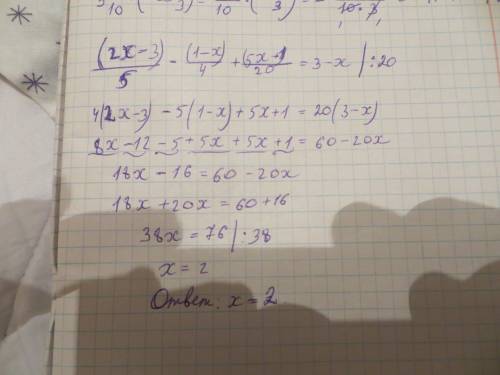 (2x-3)/5 - (1-x)/4 + (5x-1)/20 = 3-x |:20
4(2x-3) -5(1-x)+5x+1 = 20(3-x)
8x-12-5+5x+5x+1 = 60-20x
18x-16=60-20x
18x+20x=60+16
38x=76|:38
x=2
Ответ. x=2